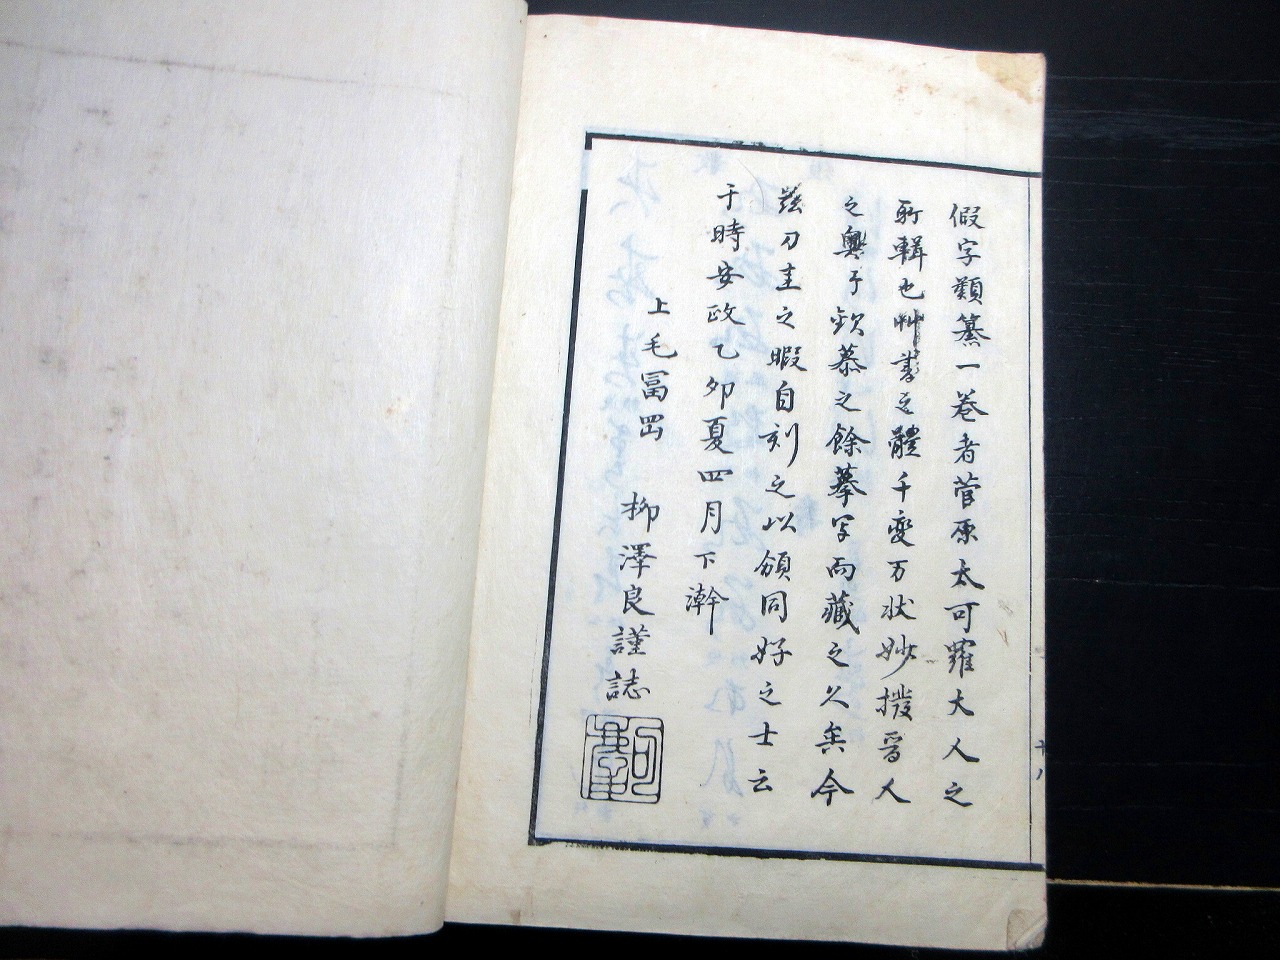 假字類纂一卷者菅原太可羅大人之
所輯也艸書之體千變万状妙撥晉人
之奥予欽慕之餘摹写而藏之久矣今
茲刀圭之暇自刻之以頒同好之士云
于時安政乙卯夏四月下澣
上毛冨岡 柳澤良謹誌